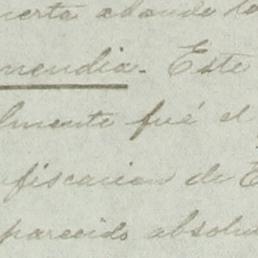 uerta adonde lo
mendia. Este
lmente fué el
fiscacion de E
parecido absolu